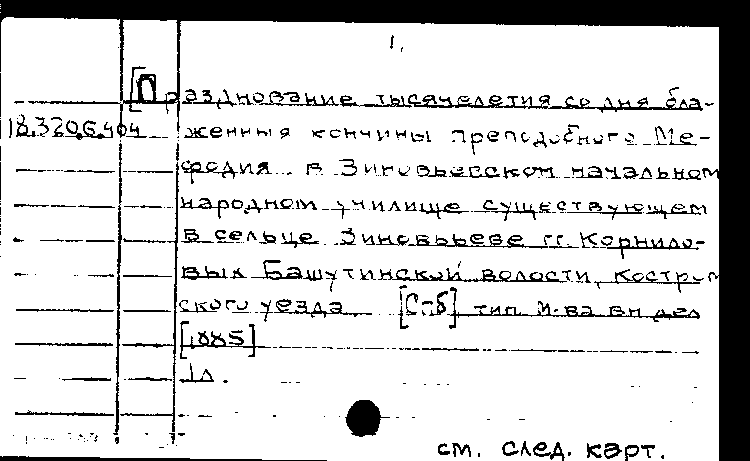 1.
[Празднование тысячелетия со дня бла-
18.320.6.404 женныя кончины преподобного Ме-
фодия в Зиновьевском начальном
народном училище существующем
в сельце Зиновьеве гг. Корнило-
вых Башутинской волости, Костром
ского уезда. [Спб] тип М-ва вн дел
[1885]
1л.
см. след. карт.